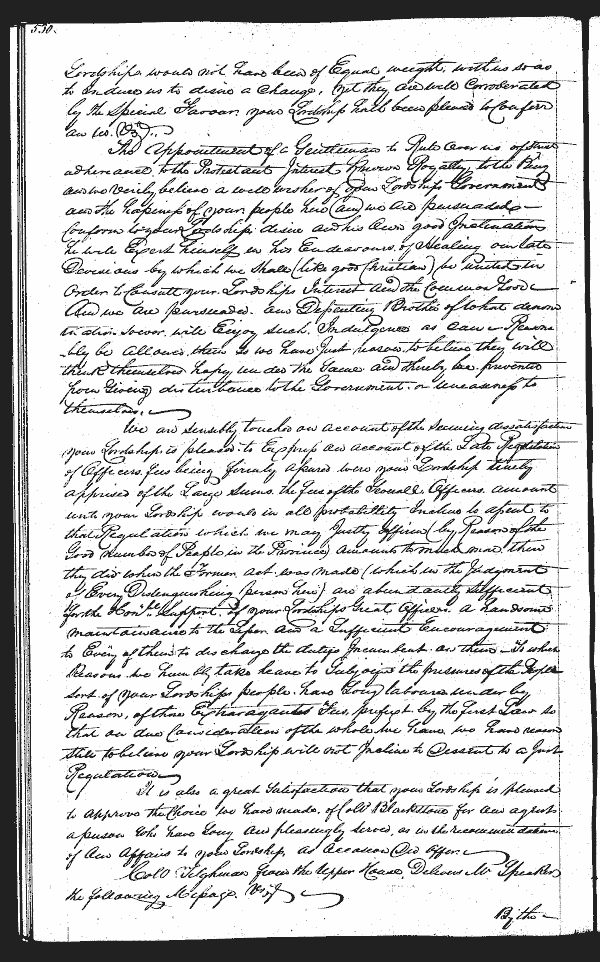 530.
Lordship would not have been of Equal weight, with us so as
to induce us to desire a Change, yet they are well Considerated
by the Special Favour your Lordship hath been pleased to Conferr
on us. (Vizt)..
The Appointment of a Gentleman to Rule over us of strict
adherance to the Protestant Interest known Royalty to the King
and we Verily believe a well wisher of your Lordships Government
and the hapiness of your people here and we are pursuaded
Conform to your Lordships desire and his own good Inclination
he will Exert himself in his Endeavours of Healing our late
Devisions by which we shall (like good Christian) be united in
Order to Consult your Lordships Interest and the Common Good
And we are pursuaded our Desenting Brother of what denom
ination soever will Enjoy such Indulgence as can Reason
bly be allowed them so we have Just reason to believe they will
think themselves hapy under the same and thereby be prevented
from Giving disturbance to the Government or uneasiness to
themselves.
We are sensibly touched on account of the seeming dissatisfaction
your Lordship is pleased to Express on account of the Late Regulation
of Officers Fees being firmly assured were your Lordship timely
apprised of the Large Sums the fees of the Severall Officers amount
unto your Lordship would in all probability Incline to assent to
that Regulation which we may Justly affirm (by Reason of the
Good number of People in the Province) amounts to much more then
they did when the Former act was made (which in the Judgment
of Every Distinguishing person here) are abundantly sufficient
for the Honble Support of your Lordships Great Officers a handsome
maintainance to the Lesser and a Sufficient Encouragement
to Every of them to discharge the dutys Incumbent on them. To which
Reasons we humbly take leave to Subjoin the pressures of the Poorer
sort of your Lordships people have Long laboured under by
Reason of those Extravagant Fees prefixt by the first Law so
that on due Consideration of the whole we have we have reason
still to believe your Lordship will not Incline to Dissent to a Just
Regulation
It is also a great Satisfaction that your Lordship is pleased
to approve the Choice we have made of Coll Blackstone for our agent
a person who have Long and pleasingly served as in the recommendations
of our Affairs to your Lordship as Occasion Did Offer.
Coll Tilghman from the Upper House, Delivers Mr Speaker
the following Message. Vizt
By the